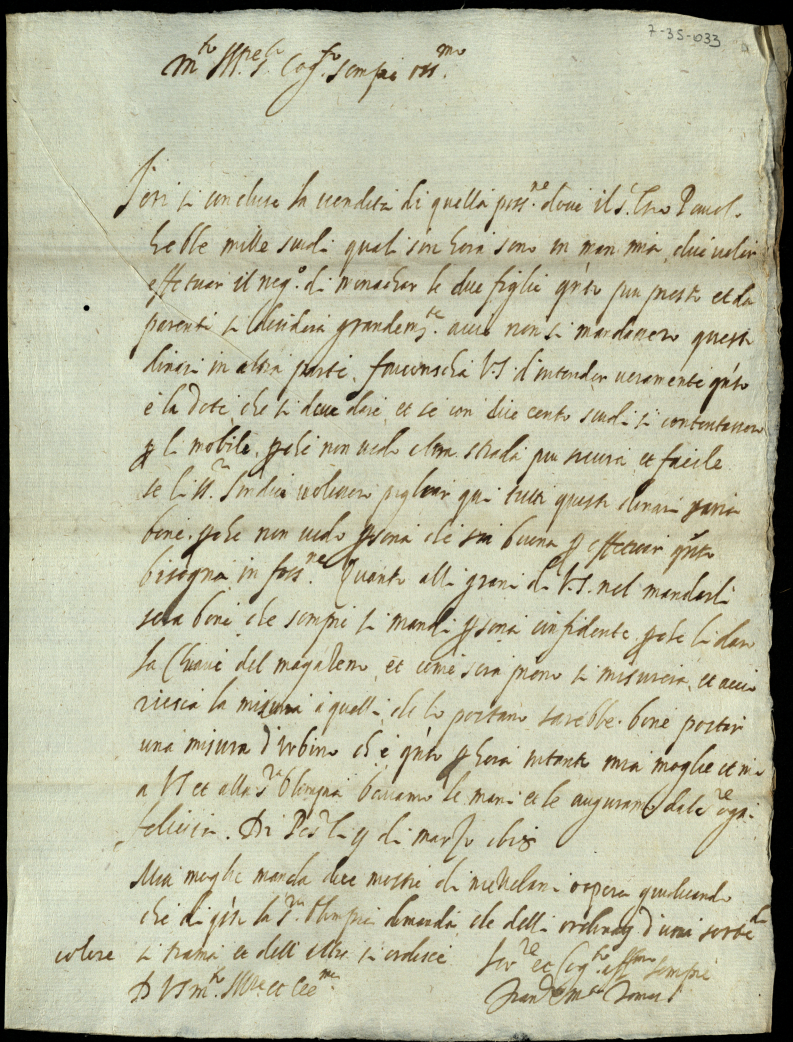 7-35-033
m.to Ill.re S.r Cog.to sempre oss.mo
Ieri si concluse la vendita di quella poss.ne dove il S.r
hebbe mille scudi quali sin hora sono in man mia, che voler
effettuar il neg.o di monachar le due figlie q'nto piu presto et da
parenti si desidera grandem.te acciò non si mandassero questi
dinari in altra parte. V.S. d'intender veramente q'nto
è la Dote, che si deve dare et se con duecento scudi si contentassero
p li mobili, pche non vedo altra strada piu sicura et facile
se li SS.ri Sindici volessero pigliar qui tutti questi dinari saria
bene. pche non vedo psona che sia buona p effettuar q'nto
bisogna in foss.ne. Quanto alli grani di V.S. nel mandarli
sera bene che sempre si mandi psona confidente pche li daro
la Chiave del magazeno, et come sera pieno si misurera, et acciò
riesca la misura à quelli, che lo portano sarebbe bene portar
una misura d'Urbino che è q'nto p hora intanto mia moglie et io
a VS et alla S.ra Olimpia baciamo le mani et le auguramo dal S.re ogni
felicita. Di Pes.o li 9 di marzo
Mia moglie manda due mostre di giudicando
che di q'ste la S.ra Olimpia dimanda, che delli d'una sorte
colore si trama et dell'altro si ordisce Ser.re et Cog.to aff.mo sempre
D VS m.to Ill.re et Ecc.ma